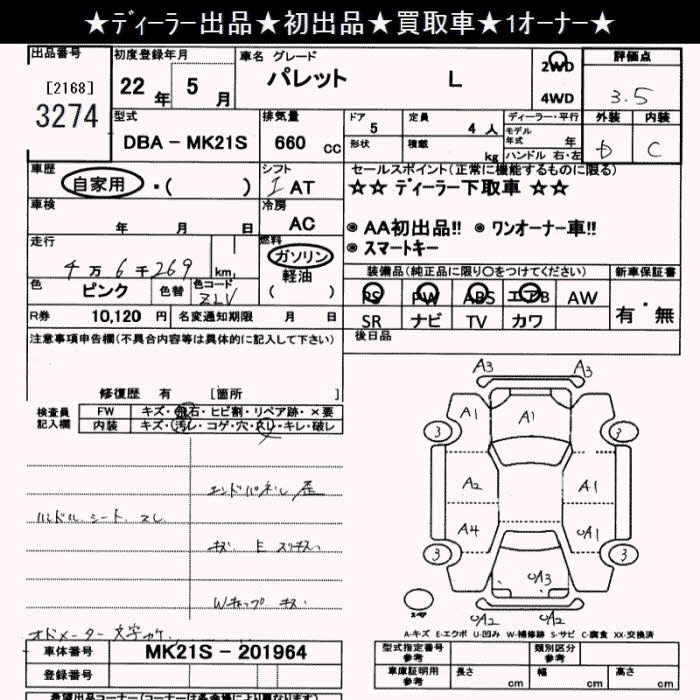 ★ディーラー出品★初出品★買取車★1オーナー★
出品番号 初度登録年月 車名 グレード 評価点
[2168] 22年 5月 パレット L 2WD 4WD 3.5
3274
外装 内装
D C
型式 排気量 ドア 定員 ディーラー・平行
DBA-MK21S 660cc 5 4人 モデル年式 年
形状 積載 kg ハンドル 右・左
車歴 シフト セールスポイント(正常に機能するものに限る)
自家用・( ) I AT ☆☆ ディーラー下取車 ☆☆
車検 冷房
年 月 日 AC ◎AA初出品!! ◎ワンオーナー車!!
◎スマートキー
走行 燃料 ガソリン
4万6千269 km 軽油
( )
装備品(純正品に限り○をつけてください) 新車保証書
色 ピンク 色替 色コード ZLV
PS PW ABS エアB AW 有・無
SR ナビ TV カワ
R券 10,120円 名変通知期限 月 日
後日品
注意事項申告欄(不具合内容等は具体的に記入して下さい)
修復歴 有 [箇所 ]
検査員記入欄 FW キズ・飛石・ヒビ割・リペア跡・×要
内装 キズ・汚レ・コゲ・穴・スレ・キレ・破レ
エンドパネル 歪
ハンドル シート スレ
W キャップ キズ
オドメーター 文字カケ
A3 A3
A1 A1
3 3
A2 A1
A4 A1
3 3
A3
A2 A2
A-キズ E-エクボ U-凹み W-補修跡 S-サビ C-腐食 XX-交換済
車体番号 MK21S-201964
登録番号
型式指定番号 参考 類別区分 参考
車庫証明用 参考 長さ cm 幅 cm 高さ cm